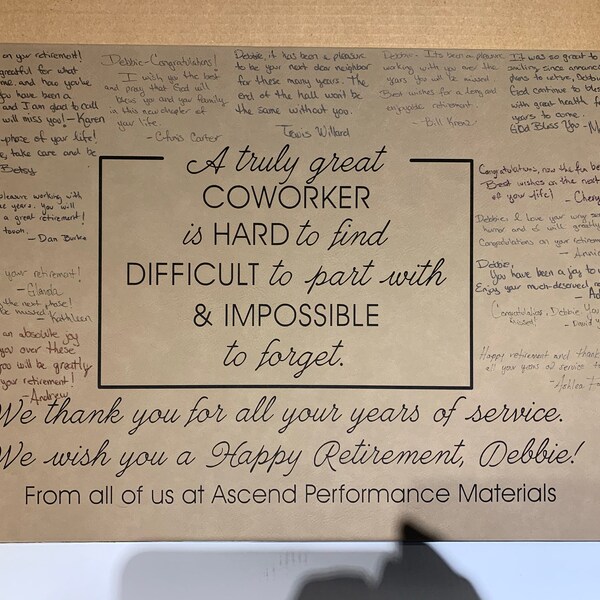 on your retirement!
greatful for what
me. and how you've
you have been a
and I am glad to call
will miss you! -Karen
-phase of your life!
take care and be
Betsy
pleasure working with
years. you will
a great retirement!
touch.
- Dan Burke
your retirement!
- Glenda
the next phase!
be missed - Kathleen
an absolute joy
you over these
you will be greatly
your retirement!
- Andrew
Debbie - Congratulations!
I wish you the best
and pray that God will
bless you and your family
in this new chapter of
your life.
- Chris Carter
Debbie, it has been a pleasure
to be your next door neighbor
for these many years. The
end of the hall won't be
the same without you.
Lewis Willard
Debbie - It's been a pleasure
working with you over the
years. You will be missed.
Best wishes for a long and
enjoyable retirement.
- Bill Krenz
It was so great to
smiling since announc
plans to retire, Debbie
God continue to bless
with great health fo
years to come.
God Bless You - M
Congratulations, now the fun be
Best wishes on the next
of your life! - Chery
Debbie, I love your wry sen
humor and I will greatly
Congratulations on your retiremen
- Annie
Debbie,
You have been a joy to
Enjoy your much-deserved
- Ad
Congratulations, Debbie You
- David
Happy retirement and thank
all your years of service to
- Ashlea
A truly great
COWORKER
is HARD to find
DIFFICULT to part with
& IMPOSSIBLE
to forget.
We thank you for all your years of service.
We wish you a Happy Retirement, Debbie!
From all of us at Ascend Performance Materials